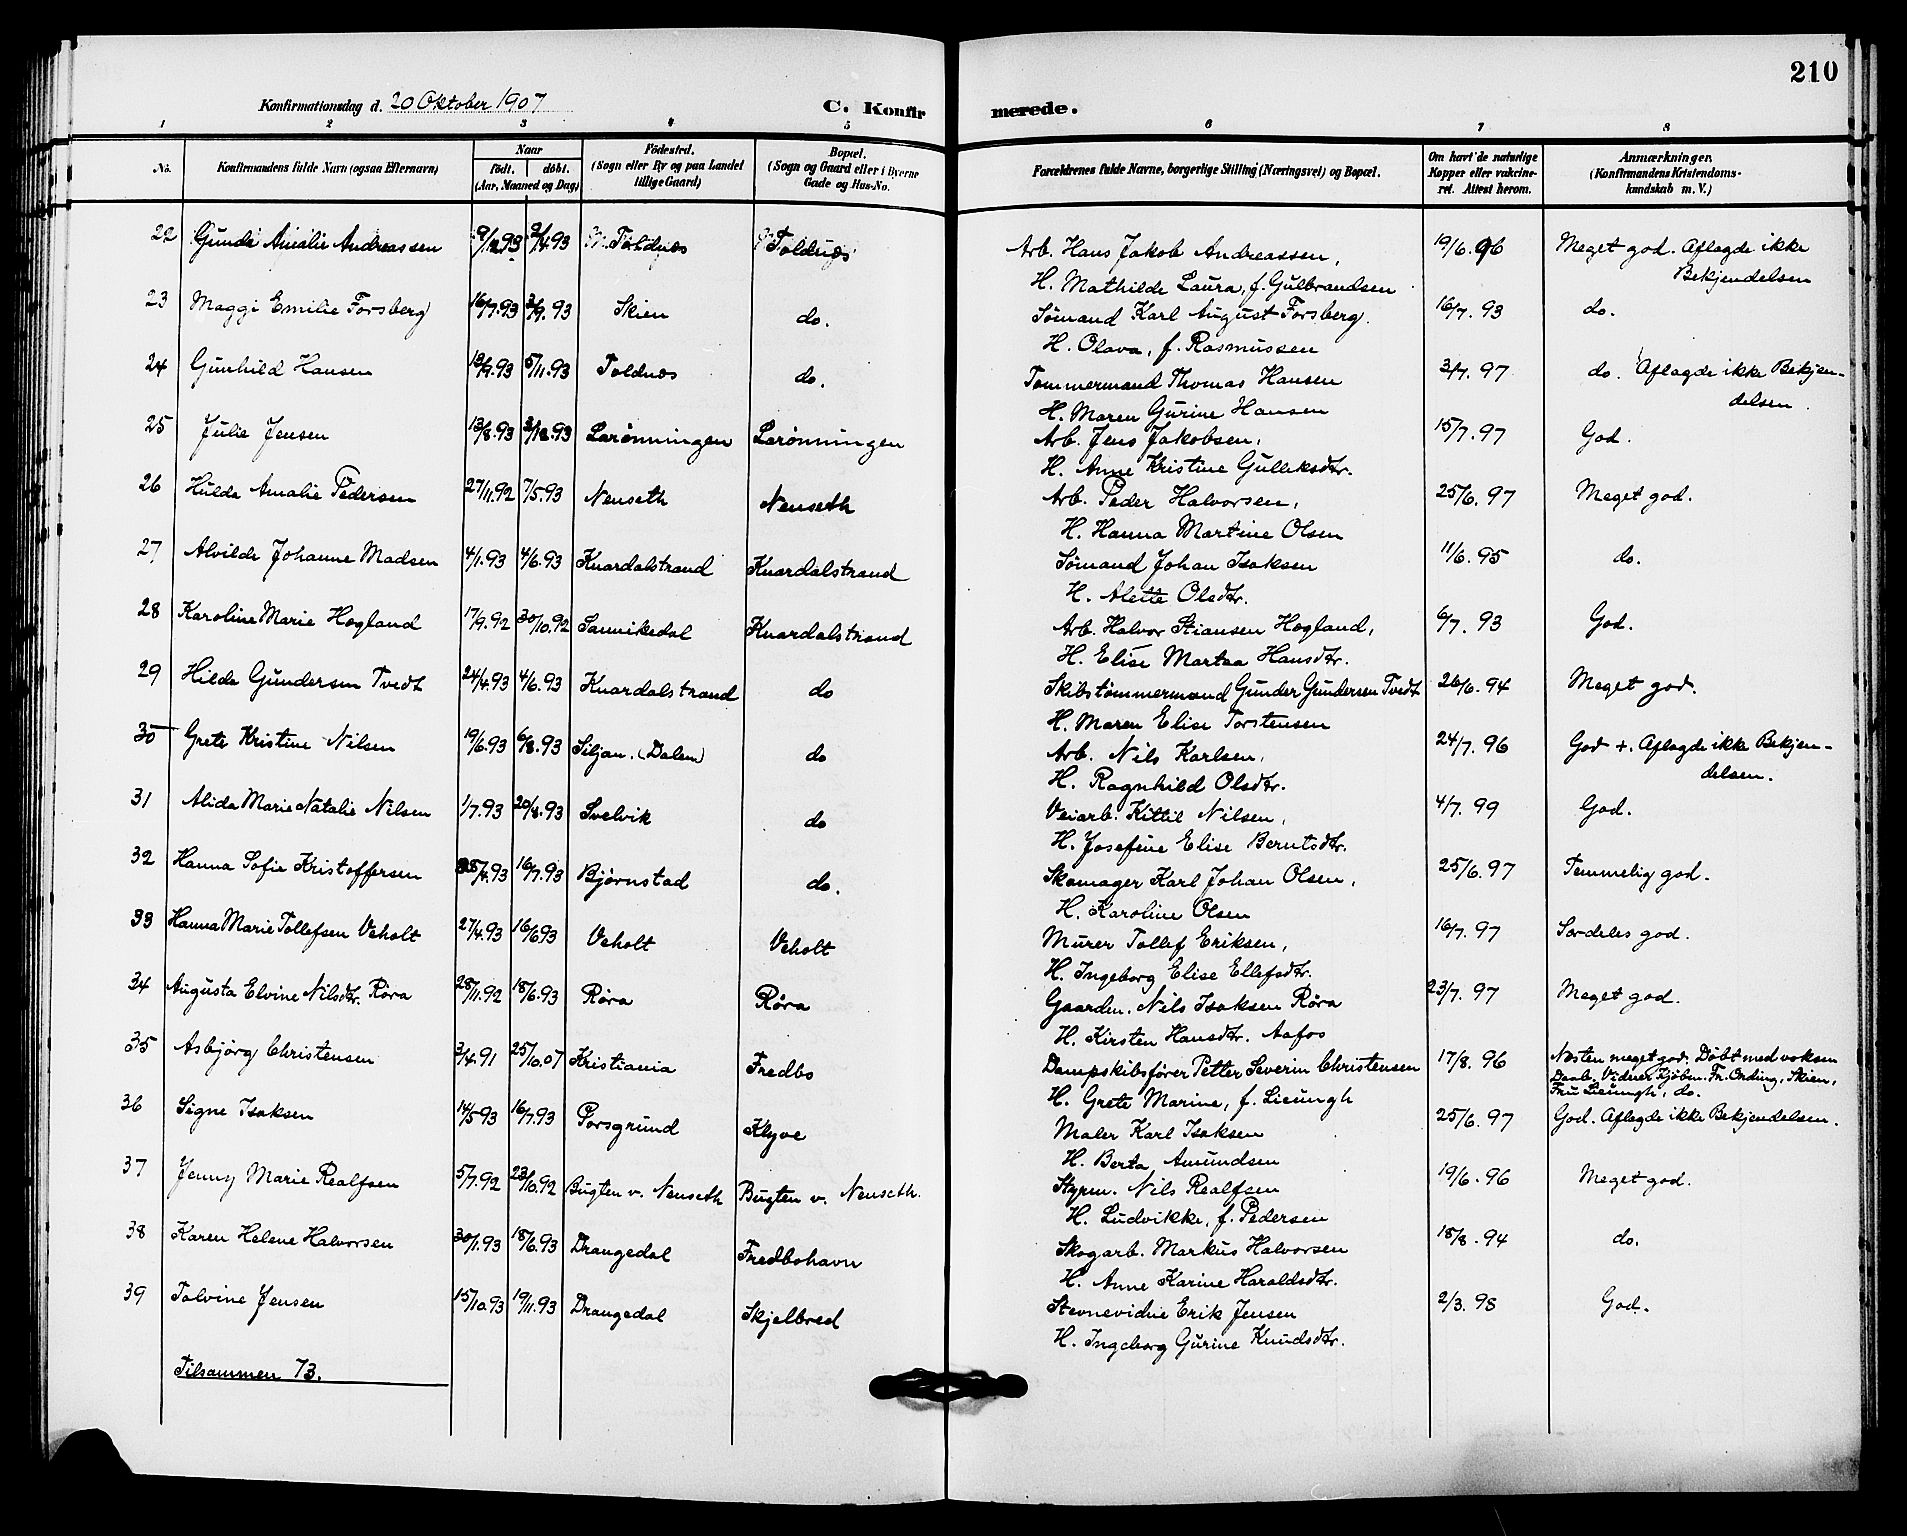 210
Konfirmationsdag d. 20 Oktober 1907 C. Konfirmerede.
1 2 3 4 5 6 7 8
No. Konfirmandens fulde Navn (ogsaa Efternavn) Naar født. døbt. (Aar, Maaned og Dag) Fødested. (Sogn eller By og paa Landet tillige Gaard) Bopæl. (Sogn og Gaard eller i Byerne Gade og Hus-No. Forældrenes fulde Navne, borgerlige Stilling (Næringsvei) og Bopæl. Om havt de naturlige Kopper eller vakcineret. Attest herom. Anmærkninger. (Konfirmandens Kristendomskundskab m. V.)
22 Gunda Amalie Andreassen 9/12 93 2/4 93 Toldnæs Toldnæs Arb. Hans Jakob Andreassen, 19/6. 96 Meget god. Aflagde ikke
H. Mathilde Laura, f. Gulbrandsen Bekjendelsen
23 Maggi Emilie Forsberg 16/7.93 3/9. 93 Skien do. Sømand Karl August Forsberg. 16/7. 93 do.
H. Olava, f. Rasmussen
24 Gunhild Hansen 13/9.93 5/11.93 Toldnæs do. Tømmermand Thomas Hansen 3/7. 97 do. Aflagde ikke Bekjen-
H. Maren Gurine Hansen delsen.
25 Julie Jensen 13/8.93 3/12.93 Larønningen Larønningen Arb. Jens Jakobsen, 15/7. 97 God.
H. Anne Kristine Gulleksdtr.
26 Hulda Amalie Pedersen 27/11.92 7/5.93 Nenseth Nenseth Arb. Peder Halvorsen, 25/6. 97 Meget god.
H. Hanna Martine Olsen
27 Alvilde Johanne Madsen 4/1.93 4/6.93 Knardalstrand Knardalstrand Sømand Johan Isaksen 11/6. 95 do.
H. Alette Olsdtr.
28 Karoline Marie Hogland 17/9.92 30/10.92 Sannikedal Knardalstrand Arb. Halvor Stiansen Hogland, 6/7. 93 God.
H. Elise Martaa Hansdtr.
29 Hilda Gundersen Tvedt 24/4.93 4/6.93 Knardalstrand do Skibstømmermand Gunder Gundersen Tvedt 26/6. 94 Meget god.
H. Maren Elise Torstensen
30 Grete Kristine Nilsen 19/6.93 6/8.93 Siljan. (Dalen) do Arb. Nils Karlsen, 24/7. 96 God +. Aflagde ikke Bekjen-
H. Ragnhild Olsdtr. delsen.
31 Alida Marie Natalie Nilsen 1/7.93 20/8.93 Svelvik do Veiarb. Kittil Nilsen, 4/7. 99 God.
H. Josefine Elise Berntsdtr.
32 Hanna Sofie Kristoffersen 25/4.93 16/7.93 Bjørnstad do. Skomager Karl Johan Olsen, 25/6. 97 Temmelig god.
H. Karoline Olsen
33 Hanna Marie Tollefsen Veholt 27/4.93 16/6.93 Veholt Veholt Murer Tollef Eriksen, 16/7. 97 Særdeles god.
H. Ingeborg Elise Ellefsdtr.
34 Augusta Elvine Nilsdtr. Røra 28/11.92 18/6.93 Røra Røra Gaarden. Nils Isaksen Røra 23/7. 97 Meget god.
H. Kirsten Hansdtr. Aafos
35 Asbjørg Christensen 3/4.91 25/10.07 Kristiania Fredbo Dampskibsfører Petter Severin Christensen 17/8. 96 Næsten meget god. Døbt med voksen
Daab. Vidner Kjøbm. Fr. Ording, Skien,
H. Grete Marine, f. Lieungh Fru Lieungh, do.
36 Signe Isaksen 14/5.93 16/7.93 Porsgrund Klyve Maler Karl Isaksen 25/6. 97 God. Aflagde ikke Bekjendelsen.
H. Berta Amundsen
37 Jenny Marie Realfsen 5/7.92 23/10.92 Bugten v. Nenseth Bugten v. Nenseth. Styrm. Nils Realfsen 19/6. 96 Meget god.
H. Ludvikke, f. Pedersen
38 Karen Helene Halvorsen 30/1.93 18/6.93 Drangedal Fredbohavn Skogarb. Markus Halvorsen 18/8. 94 do.
H. Anne Karine Haraldsdtr.
39 Tolvine Jensen 15/10.93 19/11.93 Drangedal Skjelbred Stevnevidne Erik Jensen 2/3. 98 God.
H. Ingeborg Gurine Knudsdtr.
Tilsammen 73.